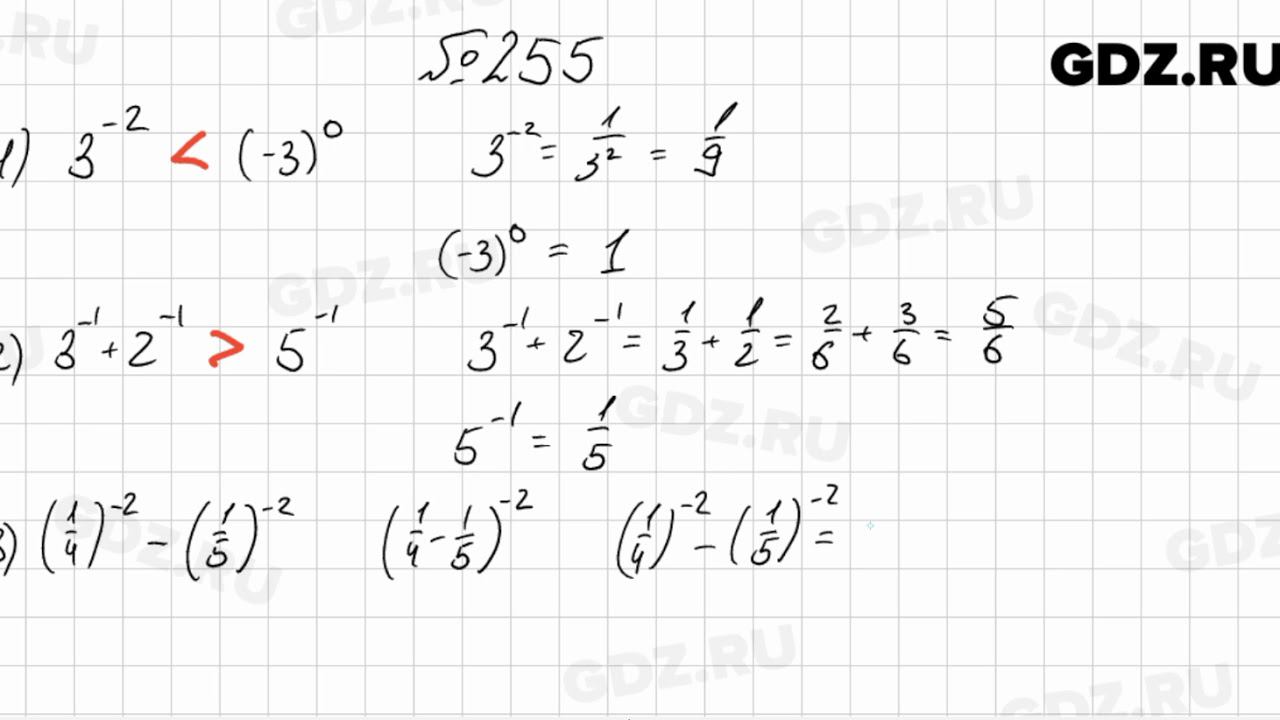 №255
GDZ.RU
1) 3⁻² < (-3)⁰ 3⁻² = 1/3² = 1/9
(-3)⁰ = 1
2) 3⁻¹ + 2⁻¹ > 5⁻¹ 3⁻¹ + 2⁻¹ = 1/3 + 1/2 = 2/6 + 3/6 = 5/6
5⁻¹ = 1/5
3) (1/4)⁻² - (1/5)⁻² (1/4 - 1/5)⁻² (1/4)⁻² - (1/5)⁻² =